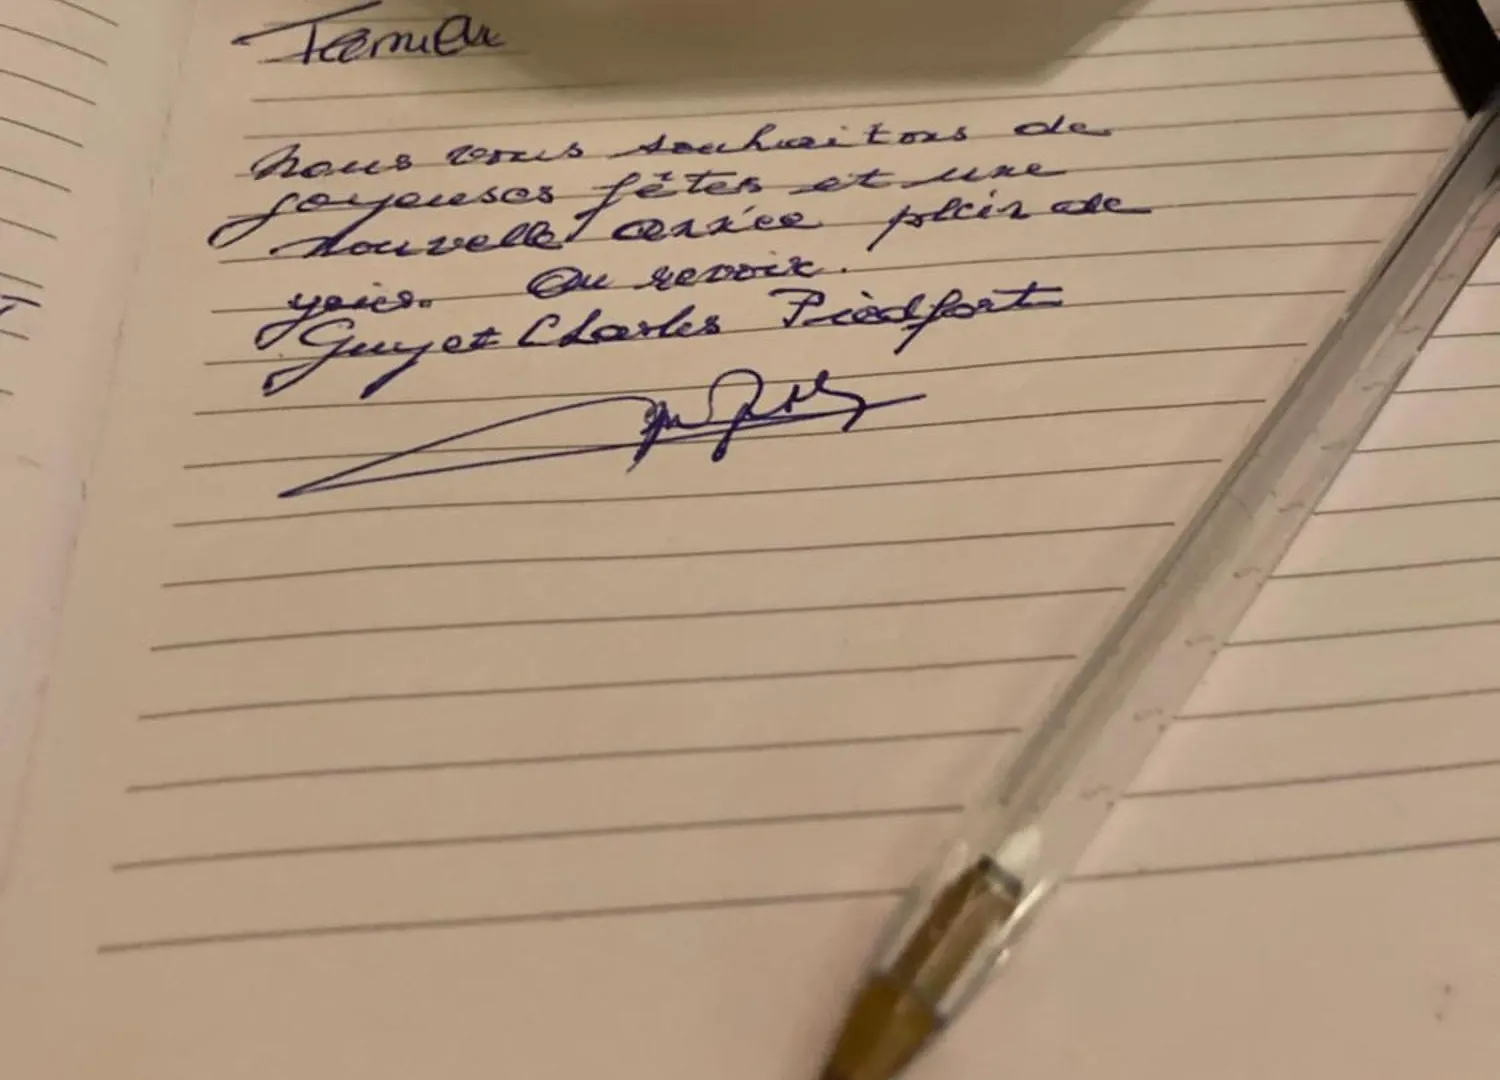 nous vous souhaitons de
joyeuses fêtes et une
nouvelle année plein de
Au revoir.
Guy et Charles Piedfort